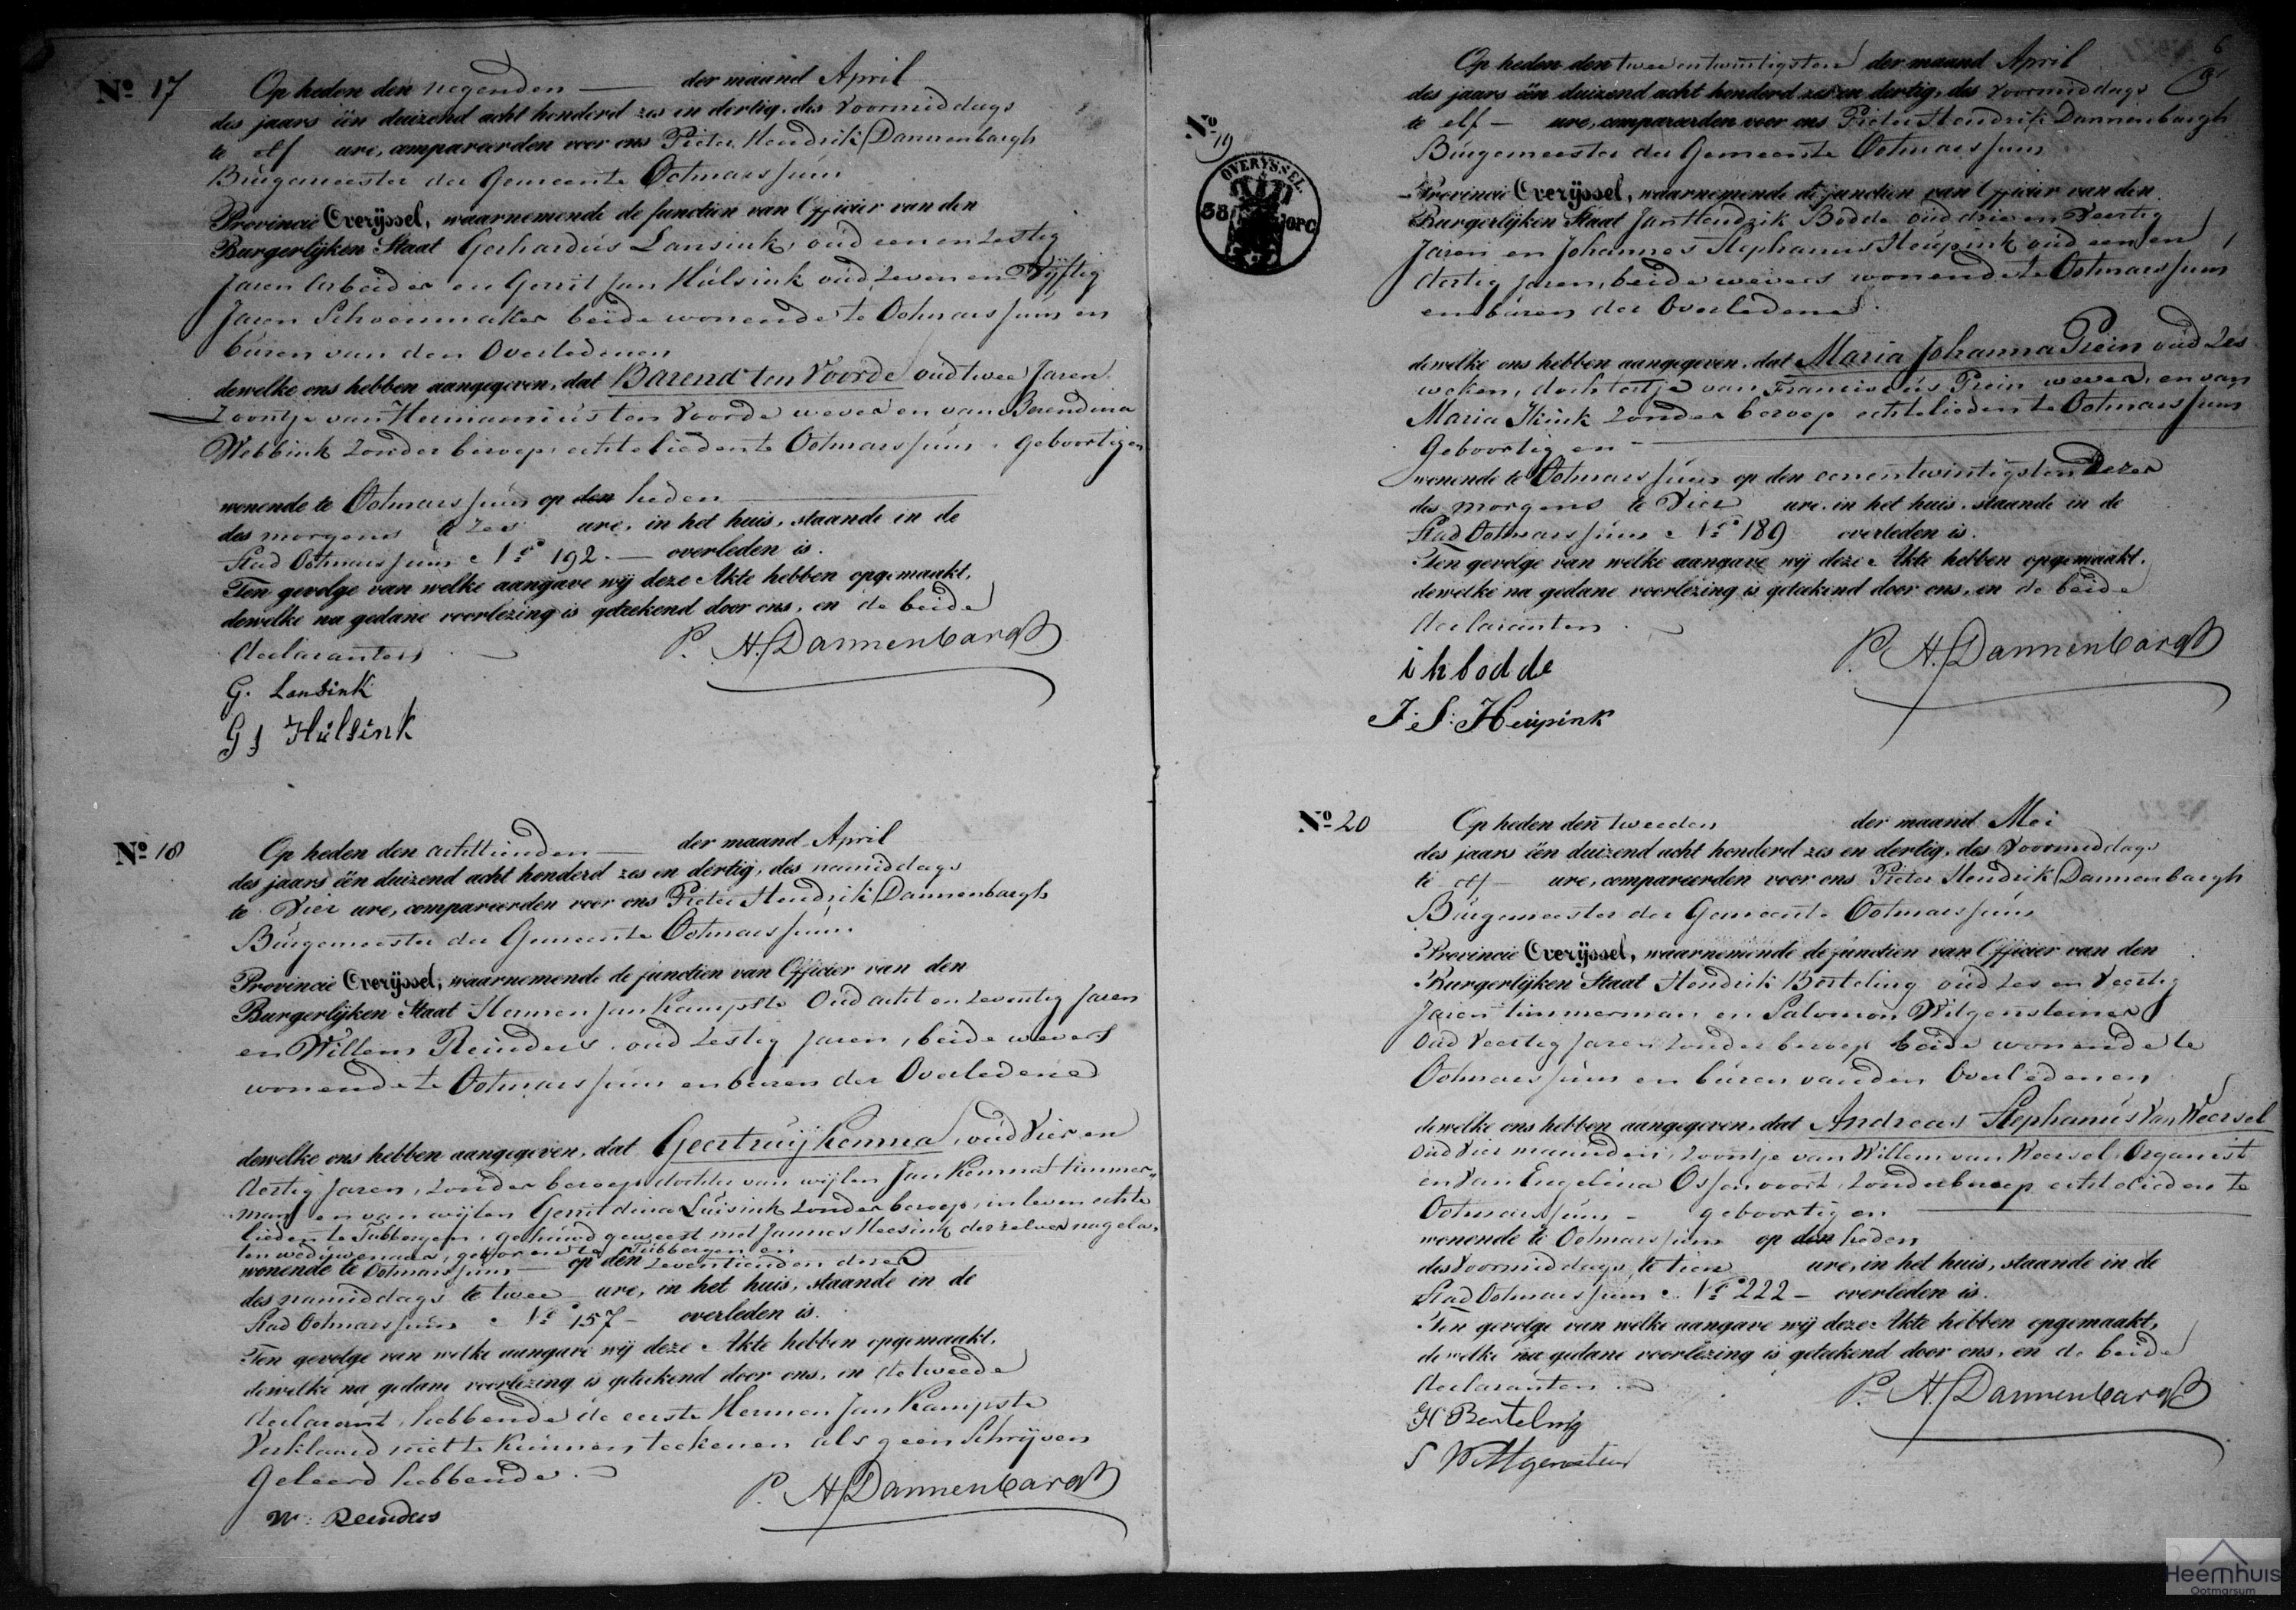 No 17
Op heden den negenden der maand April
des jaars één duizend acht honderd zes en dertig, des Voormiddags
te elf ure, compareerden voor ons Pieter Hendrik Dannenbargh
Burgemeester der Gemeente Ootmarssum
Provincie Overijssel, waarnemende de functien van Officier van den
Burgerlijken Staat Gerhardus Lansink, oud een en Zestig
Jaren Arbeider en Gerrit Jan Hulsink oud Zeven en Vijftig
Jaren Schoenmaker beide wonende te Ootmarssum en
buren van den Overledenen
dewelke ons hebben aangegeven, dat Barend ten Voorde oud twee Jaren
Zoontje van Hermannus ten Voorde wever en van Berendina
Webbink Zonder beroep, echtelieden te Ootmarssum, geboortig en
wonende te Ootmarssum op den heden
des morgens te Zes ure, in het huis, staande in de
Stad Ootmarssum No 192 overleden is.
Ten gevolge van welke aangave wij deze Akte hebben opgemaakt,
dewelke na gedane voorlezing is geteekend door ons, en de beide
declaranten
P. H. Dannenbargh
G. Lansink
G J Hülsink
No 18
Op heden den achttienden der maand April
des jaars één duizend acht honderd zes en dertig, des namiddags
te Vier ure, compareerden voor ons Pieter Hendrik Dannenbargh
Burgemeester der Gemeente Ootmarssum
Provincie Overijssel, waarnemende de functien van Officier van den
Burgerlijken Staat Hermen Jan Kampste Oud acht en Zeventig Jaren
en Willem Reinders oud Zestig Jaren, beide wevers
wonende te Ootmarssum en buren der Overledene
dewelke ons hebben aangegeven, dat Geertruij Kemna, oud Vier en
dertig Jaren, Zonder beroep dochter van wijlen Jan Kemna timmer„
man en van wijlen Gerritdina Luisink Zonder beroep, in leven echte
lieden te Tubbergen, gehuwd geweest met Jannes Heesink deszelver nagela„
ten weduwenaar, geboren te Tubbergen en
wonende te Ootmarssum op den Zeventienden dezer
des namiddags te twee ure, in het huis, staande in de
Stad Ootmarssum No 157 overleden is.
Ten gevolge van welke aangave wij deze Akte hebben opgemaakt,
dewelke na gedane voorlezing is geteekend door ons, en de tweede
declarant, hebbende de eerste Hermen Jan Kampste
Verklaard niet te kunnen teekenen als geen Schrijven
Geleerd hebbende.
P. H. Dannenbargh
W. Reinders
6
No 19
OVERYSSEL
Op heden den twee en twintigsten der maand April
des jaars één duizend acht honderd zes en dertig, des Voormiddags
te elf ure, compareerden voor ons Pieter Hendrik Dannenbargh
Burgemeester der Gemeente Ootmarssum
Provincie Overijssel, waarnemende de functien van Officier van den
Burgerlijken Staat Jan Hendrik Bodde oud drie en Veertig
Jaren en Johannes Stephanus Heupink oud een en
dertig Jaren, beide wevers wonende te Ootmarssum
en buren der Overledene
dewelke ons hebben aangegeven, dat Maria Johanna Prein oud Zes
weken, dochtertje van Franciscus Prein wever, en van
Maria Zonder beroep echtelieden te Ootmarssum
Geboortig en
wonende te Ootmarssum op den eenentwintigsten Dezer
des morgens te Vier ure, in het huis, staande in de
Stad Ootmarssum No 189 overleden is.
Ten gevolge van welke aangave wij deze Akte hebben opgemaakt,
dewelke na gedane voorlezing is geteekend door ons, en de beide
declaranten
P. H. Dannenbargh
i h bodde
J: S: Heupink
No 20
Op heden den tweeden der maand Mei
des jaars één duizend acht honderd zes en dertig, des Voormiddags
te elf ure, compareerden voor ons Pieter Hendrik Dannenbargh
Burgemeester der Gemeente Ootmarssum
Provincie Overijssel, waarnemende de functien van Officier van den
Burgerlijken Staat Hendrik Berteling oud Zes en Veertig
Jaren timmerman en Salomon Witgensteiner
Oud Veertig Jaren Zonder beroep beide wonende te
Ootmarssum en buren van den Overledenen
dewelke ons hebben aangegeven, dat Andreas Stephanus Van Weersel
Oud Vier maanden, Zoontje van Willem van Weersel, Organist
en Van Engelina Ossenvoort, Zonder beroep echtelieden te
Ootmarssum geboortig en
wonende te Ootmarssum op den heden
des Voormiddags te tien ure, in het huis, staande in de
Stad Ootmarssum No 222 overleden is.
Ten gevolge van welke aangave wij deze Akte hebben opgemaakt,
dewelke na gedane voorlezing is geteekend door ons, en de beide
declaranten
P. H. Dannenbargh
H Bertelnig
S Wittgenstein
Heemhuis
Ootmarsum